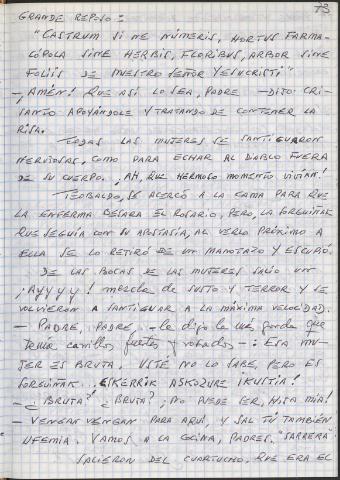 73
GRANDE REPOSO:
"CASTRUM SINE NUMERIS, HORTUS FARMA-
CÓPOLA SINE HERBIS, FLORIBUS, ARBOR SINE
FOLIIS DE NUESTRO SEÑOR YESUCRISTI"
- ¡AMÉN! QUE ASÍ LO SEA, PADRE - DIJO CRI-
SANTO APOYÁNDOLE Y TRATANDO DE CONTENER LA
RISA.
TODAS LAS MUJERES SE SANTIGUARON
NERVIOSAS, COMO PARA ECHAR AL DIABLO FUERA
DE SU CUERPO. ¡AH, QUE HERMOSO MOMENTO VIVÍAN!
TEOBALDO, SE ACERCÓ A LA CAMA PARA QUE
LA ENFERMA BESARA EL ROSARIO, PERO, LA SORGUIÑAK
QUE SEGUÍA CON SU APOSTASÍA, AL VERLO PRÓXIMO A
ELLA SE LO RETIRÓ DE UN MANOTAZO Y ESCUPIÓ.
DE LAS BOCAS DE LAS MUJERES SALIO UN
¡AYYYY! MEZCLA DE SUSTO Y TERROR Y SE
VOLVIERON A SANTIGUAR A LA MÁXIMA VELOCIDAD.
- PADRE, PADRE, - le dijo la más gorda que
tenía carrillos fuertes y robados -: ESA MU-
JER ES BRUTA. USTÉ NO LO SABE, PERO ES
SORGUIÑAK. ¡ESKERRIK ASKOZURE IKUSTIA!
- ¿BRUTA? ¿BRUTA? ¡NO PUEDE SER, HIJA MÍA!
- VENGAN VENGAN PARA AQUÍ, Y SAL TÚ TAMBIÉN
UFEMIA. VAMOS A LA COCINA, PADRES. "SARRERA"
SALIERON DEL CUARTUCHO, QUE ERA EL